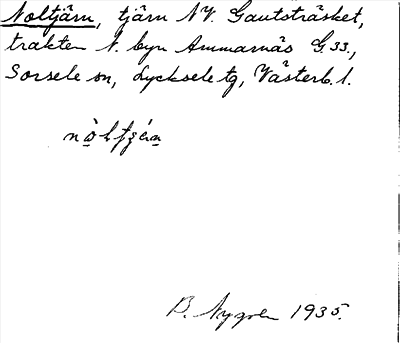 Noltjärn, tjärn NV. Gautsträsket,
trakten N. byn Ammarnäs G 33,
Sorsele sn, Lycksele tg, Västerb. l.
B. Nygren 1935.